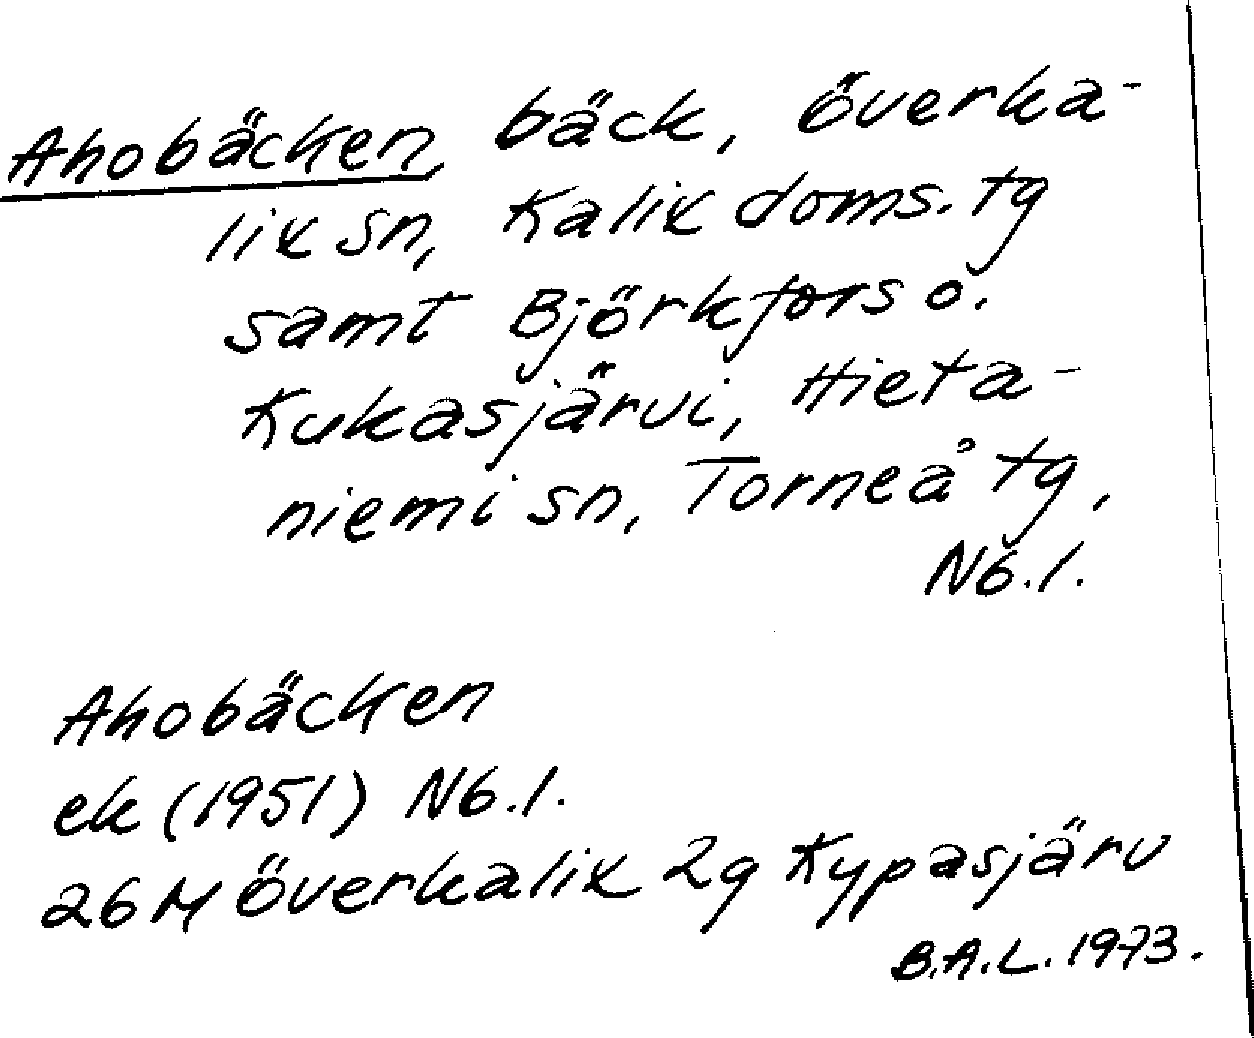 Ahobäcken, bäck, Överka-
lix sn, Kalix doms. tg
samt Björkfors o.
Kukasjärvi, Hieta-
niemi sn, Torneå tg,
Nb.l.
Ahobäcken
ek (1951) Nb.l.
26M Överkalix 2g Kypasjärv
B.A.L. 1973.